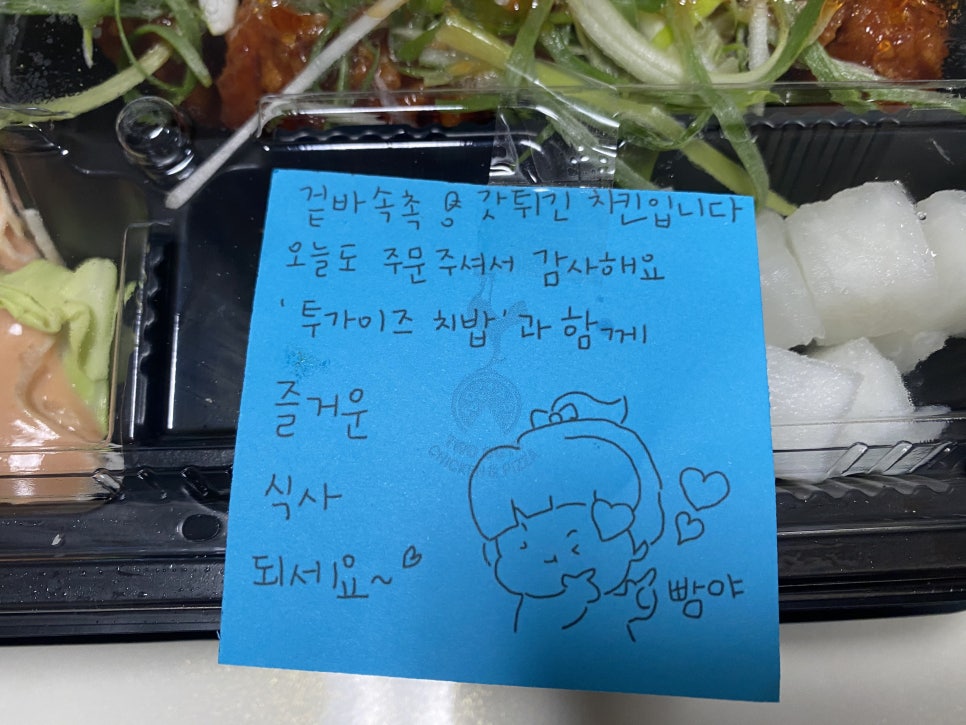 겉바속촉 갓튀긴 치킨입니다
오늘도 주문주셔서 감사해요
'투가이즈 치밥'과 함께
즐거운
식사
되세요~
빵야
CHICKEN & PIZZA